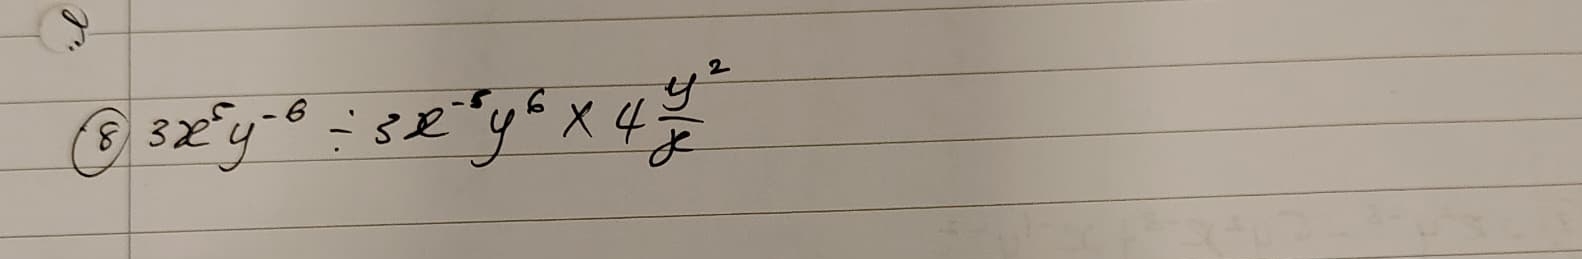 ⑧ 3x⁵y⁻⁶ ÷ 3x⁻⁵y⁶ × 4 y²/x